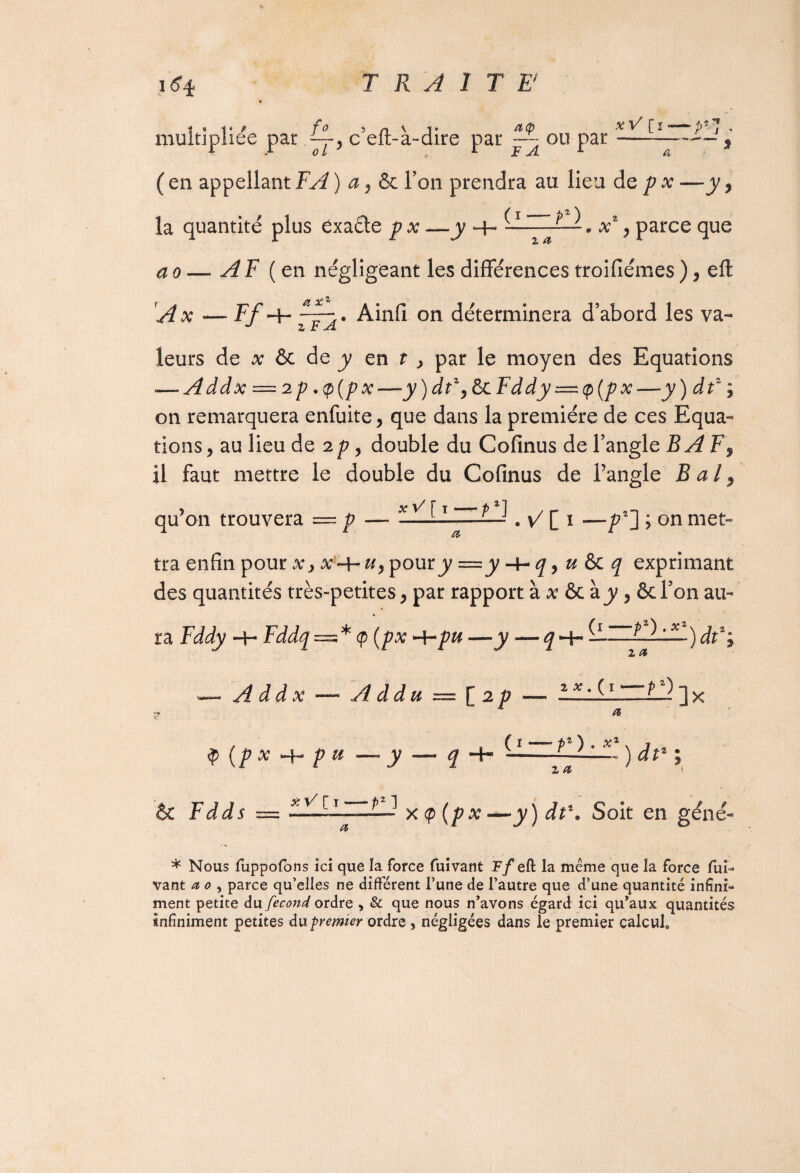 164 TRAITE'
multipliée par fo/ol, c'eſt-à-dire par aφ/FA ou par x√[1—p²]/a,
(en appellant FA) a, & l'on prendra au lieu de px—y,
la quantité plus exacte px—y+(1—p²)/2a.x², parce que
ao—AF (en négligeant les différences troiſiémes), eſt
Ax—Ff+ax²/2FA. Ainſi on déterminera d'abord les va-
leurs de x & de y en t, par le moyen des Equations
—Addx=2p.φ(px—y)dt², & Fddy=φ(px—y)dt²;
on remarquera enſuite, que dans la premiére de ces Equa-
tions, au lieu de 2p, double du Coſinus de l'angle BAF,
il faut mettre le double du Coſinus de l'angle Bal,
qu'on trouvera =p—x√[1—p²]/a.√[1—p²]; on met-
tra enfin pour x, x+u, pour y=y+q, u & q exprimant
des quantités très-petites, par rapport à x & à y, & l'on au-
ra Fddy+Fddq=*φ(px+pu—y—q+(1—p²).x²/2a)dt²;
—Addx—Addu=[2p—2x.(1—p²)/a]×
φ(px+pu—y—q+(1—p²).x²/2a)dt²;
& Fdds=x√[1—p²]/a×φ(px—y)dt². Soit en géné-
* Nous ſuppoſons ici que la force ſuivant Ff eſt la même que la force ſui-
vant ao, parce qu'elles ne différent l'une de l'autre que d'une quantité infini-
ment petite du ſecond ordre, & que nous n'avons égard ici qu'aux quantités
infiniment petites du premier ordre, négligées dans le premier calcul.